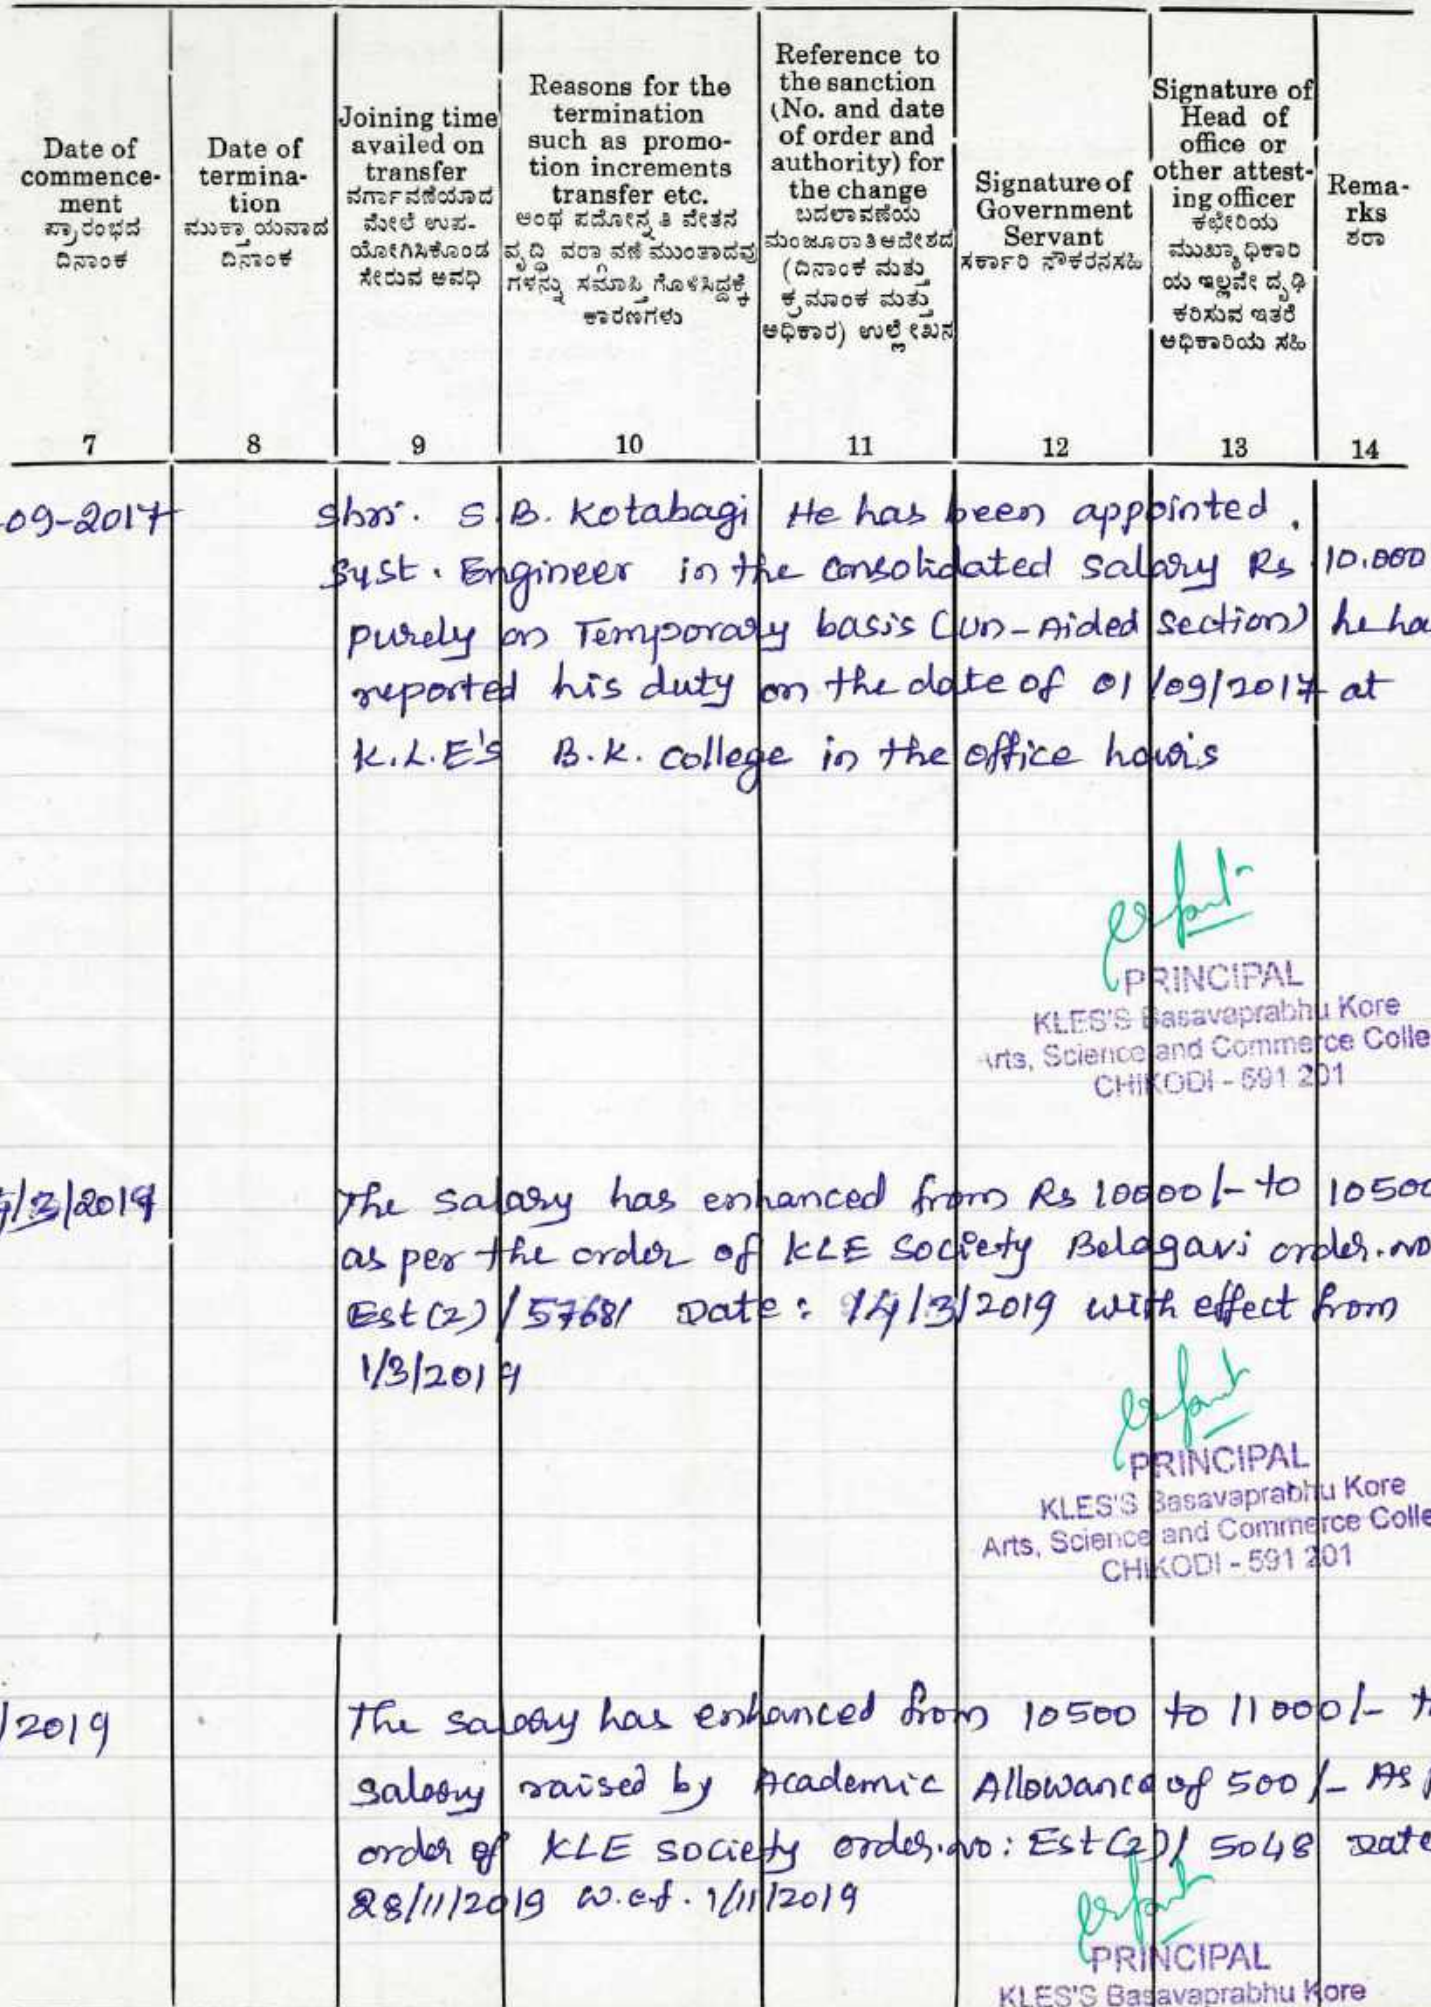 Date of
commence-
ment
ಪ್ರಾರಂಭದ
ದಿನಾಂಕ
7
Date of
termina-
tion
ಮುಕ್ತಾಯನಾದ
ದಿನಾಂಕ
8
Joining time
availed on
transfer
ವರ್ಗಾವಣೆಯಾದ
ಮೇಲೆ ಉಪ-
ಯೋಗಿಸಿಕೊಂಡ
ಸೇರುವ ಅವಧಿ
9
Reasons for the
termination
such as promo-
tion increments
transfer etc.
ಅಂಥ ಪದೋನ್ನತಿ ವೇತನ
ವೃದ್ಧಿ ವರ್ಗಾವಣೆ ಮುಂತಾದವು
ಗಳನ್ನು ಸಮಾಪ್ತಿಗೊಳಿಸಿದ್ದಕ್ಕೆ
ಕಾರಣಗಳು
10
Reference to
the sanction
(No. and date
of order and
authority) for
the change
ಬದಲಾವಣೆಯ
ಮಂಜೂರಾತಿ ಆದೇಶದ
(ದಿನಾಂಕ ಮತ್ತು
ಕ್ರಮಾಂಕ ಮತ್ತು
ಅಧಿಕಾರ) ಉಲ್ಲೇಖನ
11
Signature of
Government
Servant
ಸರ್ಕಾರಿ ನೌಕರನಸಹಿ
12
Signature of
Head of
office or
other attest-
ing officer
ಕಛೇರಿಯ
ಮುಖ್ಯಾಧಿಕಾರಿ
ಯ ಇಲ್ಲವೇ ದೃಢಿ
ಕರಿಸುವ ಇತರೆ
ಅಧಿಕಾರಿಯ ಸಹಿ
13
Rema-
rks
ಶರಾ
14
-09-2017 Shri. S.B. Kotabagi He has been appointed.
Syst. Engineer in the consolidated salary Rs 10.000
purely on Temporary basis (un-Aided Section) he ha
reported his duty on the date of 01/09/2017 at
K.L.E's B.K. college in the office hours
PRINCIPAL
KLES'S Basavaprabhu Kore
Arts, Science and Commerce Colle
CHIKODI - 591 201
/3/2019 The salary has enhanced from Rs 10000/- to 10500
as per the order of KLE Society Belagavi order.no
Est(2)/5768/ Date: 14/3/2019 with effect from
1/3/2019
PRINCIPAL
KLES'S Basavaprabhu Kore
Arts, Science and Commerce Colle
CHIKODI - 591 201
/2019 The salary has enhanced from 10500 to 11000/-
salary raised by Academic Allowance of 500/- As
order of KLE society order.no: Est(2)/ 5048 Date
28/11/2019 w.e.f. 1/11/2019
PRINCIPAL
KLES'S Basavaprabhu Kore